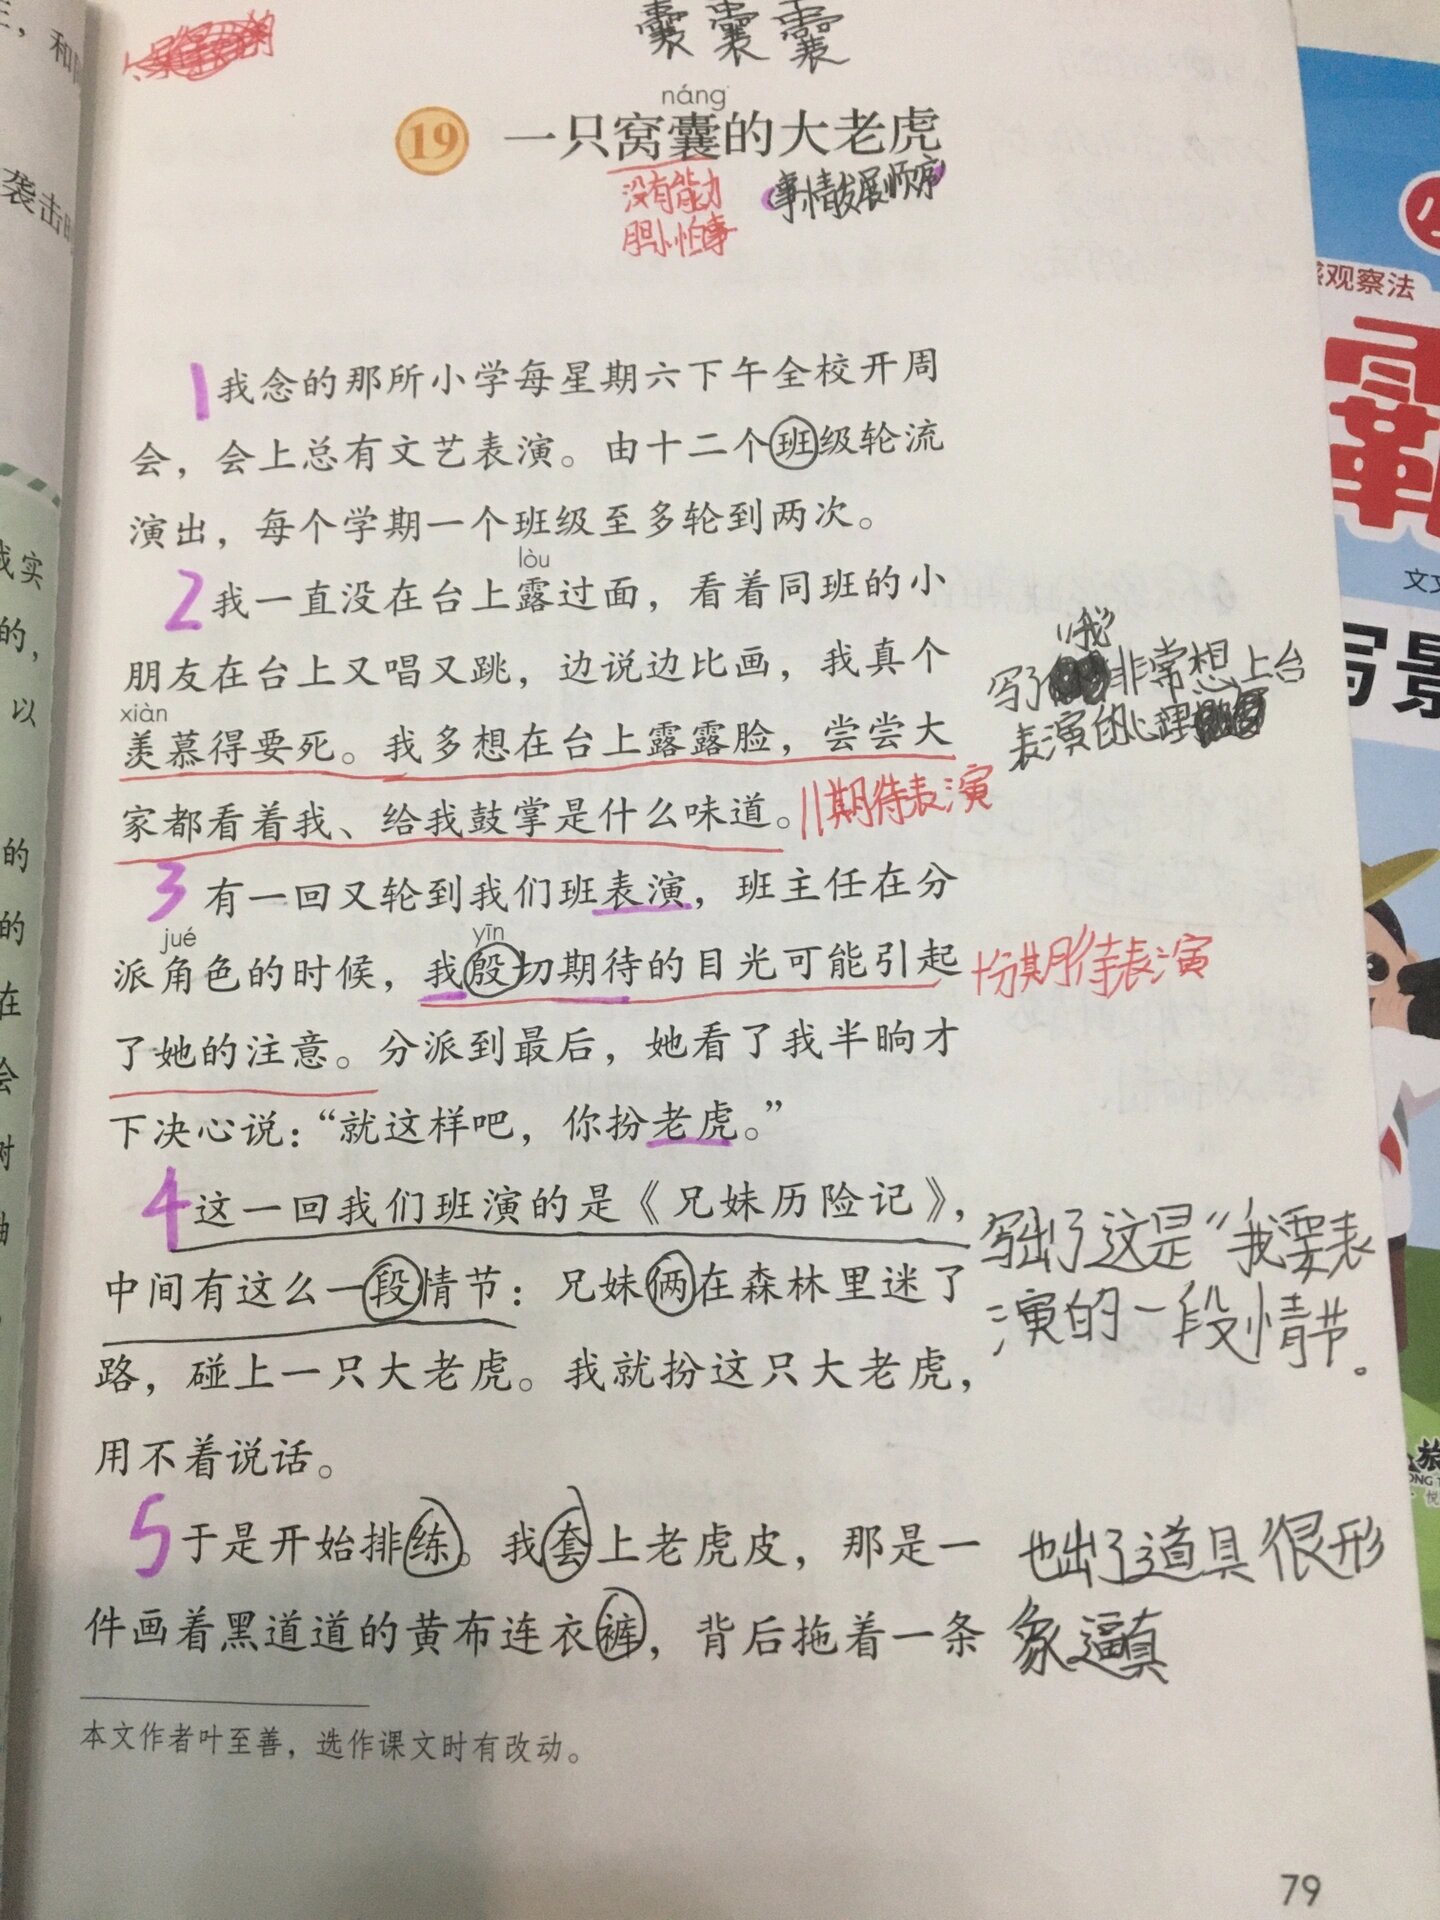 囊囊囊
náng
19 一只窝囊的大老虎
没有能力
胆小怕事
事情发展顺序
1我念的那所小学每星期六下午全校开周
会，会上总有文艺表演。由十二个班级轮流
演出，每个学期一个班级至多轮到两次。
lòu
2我一直没在台上露过面，看着同班的小
朋友在台上又唱又跳，边说边比画，我真个
xiàn
羡慕得要死。我多想在台上露露脸，尝尝大
家都看着我、给我鼓掌是什么味道。
写了“我”非常想上台
表演的心理
期待表演
3有一回又轮到我们班表演，班主任在分
jué yīn
派角色的时候，我殷切期待的目光可能引起
十分期待表演
了她的注意。分派到最后，她看了我半晌才
下决心说：“就这样吧，你扮老虎。”
4这一回我们班演的是《兄妹历险记》，
中间有这么一段情节：兄妹俩在森林里迷了
路，碰上一只大老虎。我就扮这只大老虎，
用不着说话。
写出了这是“我要表
演的一段情节。
5于是开始排练。我套上老虎皮，那是一
件画着黑道道的黄布连衣裤，背后拖着一条
也出了道具很形
象逼真
本文作者叶至善，选作课文时有改动。
79
和
袭击
实
的，
以
的
的
在
会
树
观察法
霸
写景